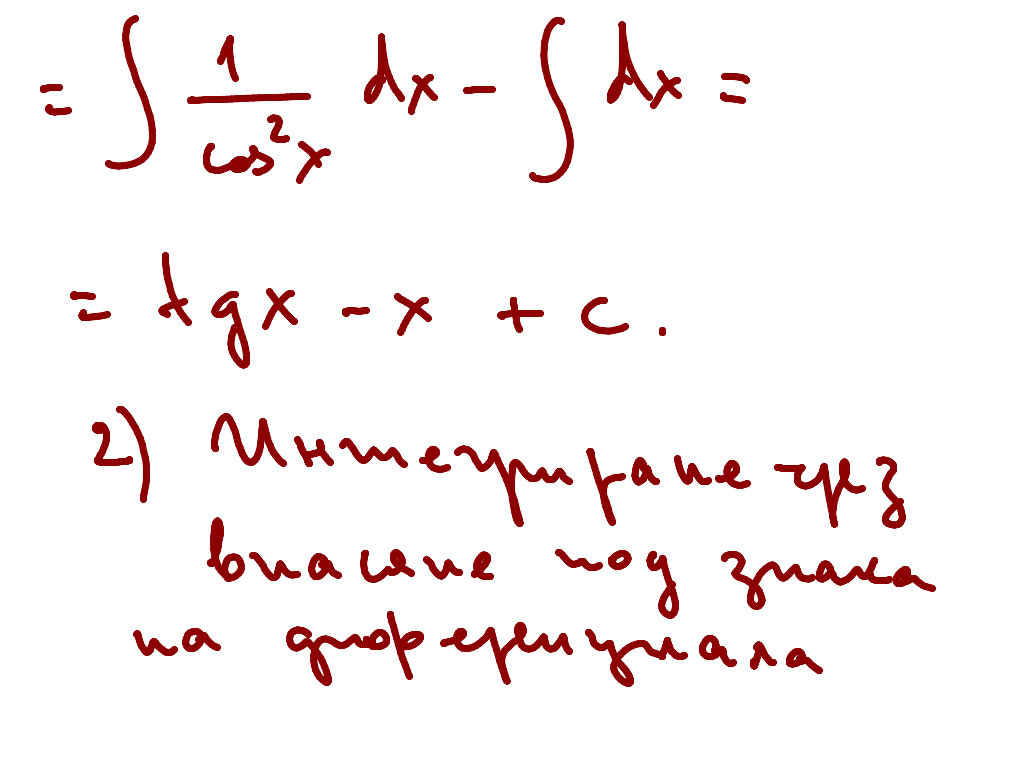 = ∫ 1/cos²x dx - ∫ dx =
= tgx - x + c.
2) Интегриране чрез
внасяне под знака
на диференциала